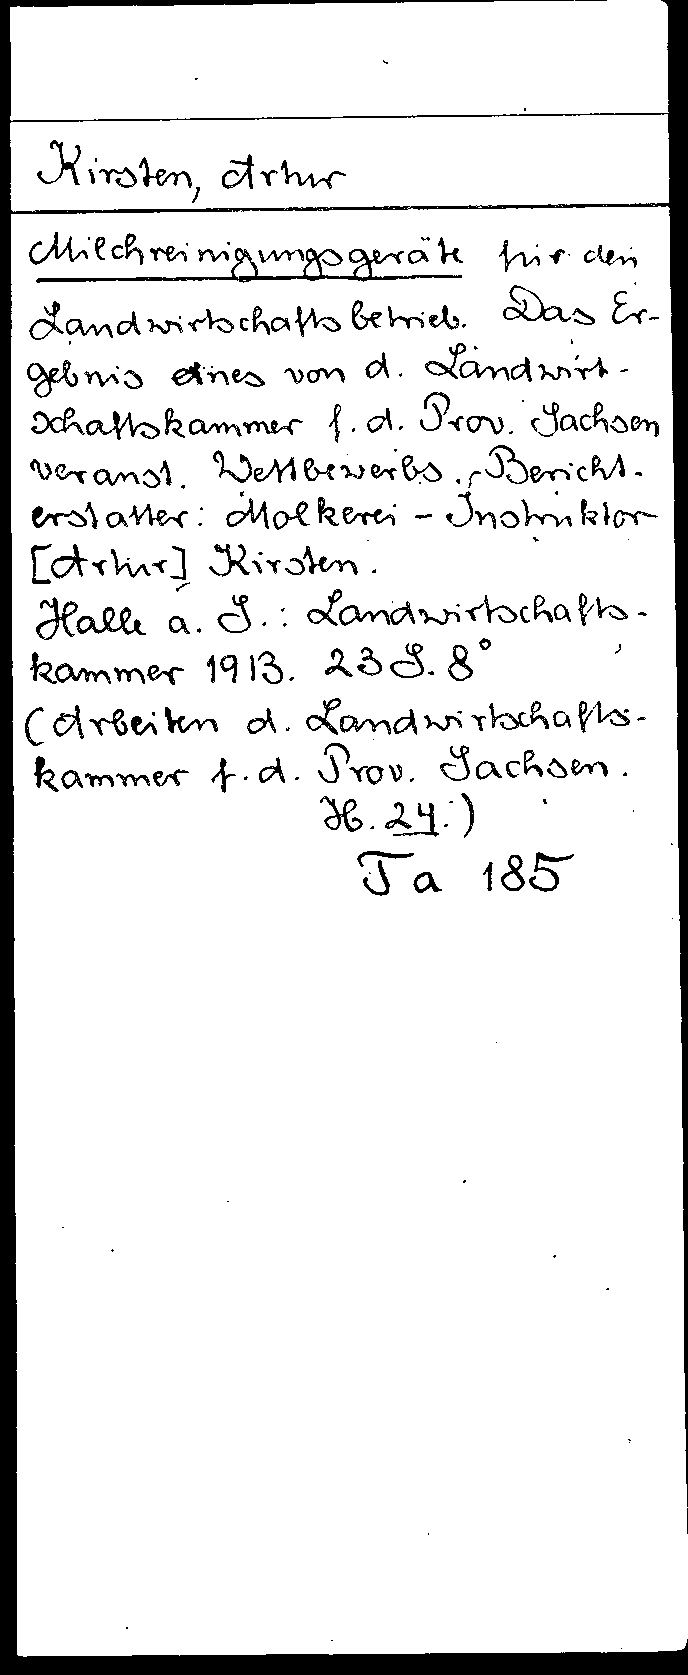 Kirsten, Artur
Milchreinigungsgeräte für den
Landwirtschaftsbetrieb. Das Er-
gebnis eines von d. Landwirt-
schaftskammer f. d. Prov. Sachsen
veranst. Wettbewerbs. Bericht-
erstatter: Molkerei-Instruktor
[Artur] Kirsten.
Halle a. S.: Landwirtschafts-
kammer 1913. 23 S. 8°
(Arbeiten d. Landwirtschafts-
kammer f. d. Prov. Sachsen.
H. 24.)
Ta 185